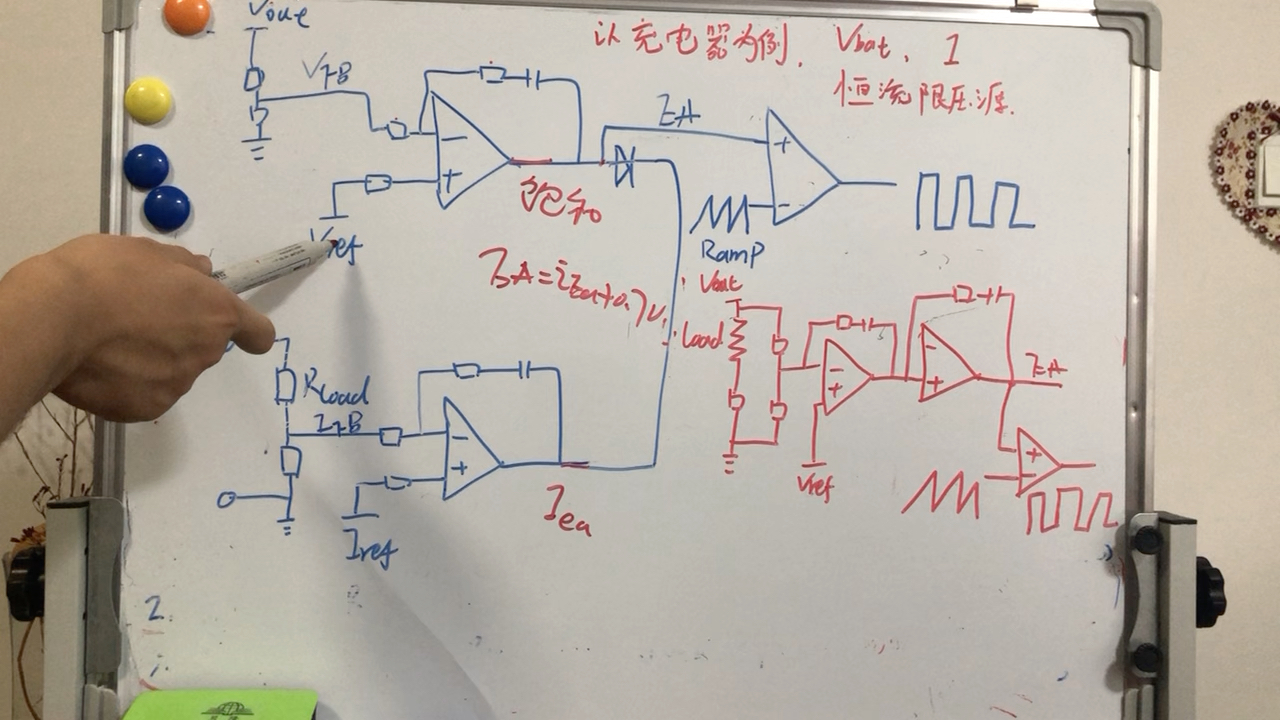 Vout
以充电器为例, Vbat, 1
恒流限压源.
VFB
EA
-
+
+
-
饱和
Ramp
Vref
EA=iea+0.7V
Vbat
Load
Rload
IFB
-
+
-
+
-
+
EA
+
-
Vref
Iea
Iref
2.